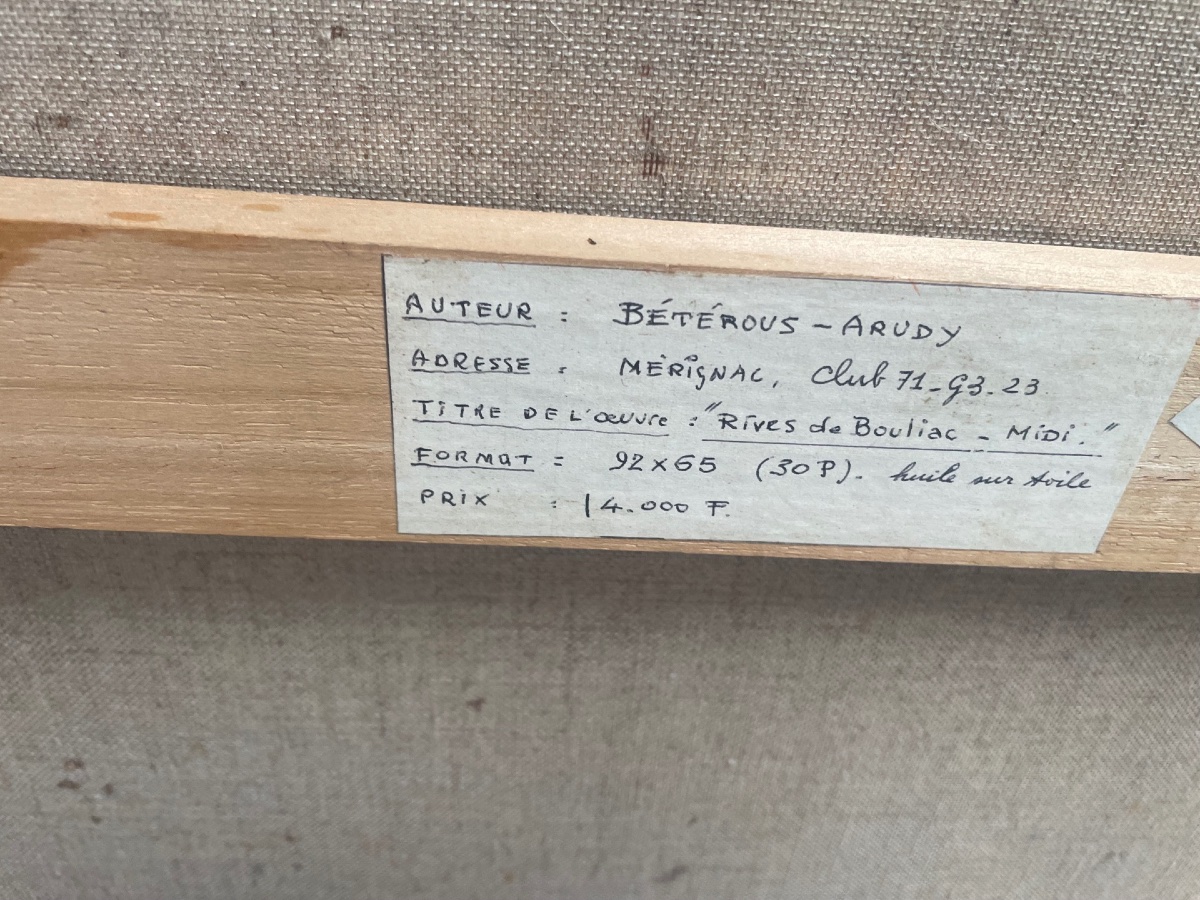 AUTEUR : BÉTÉROUS - ARUDY
ADRESSE : MÉRIGNAC, Club 71-G3-23
TITRE DE L'Œuvre : "Rives de Bouliac - Midi."
FORMAT = 92x65 (30P). huile sur toile
PRIX : 14.000 F.